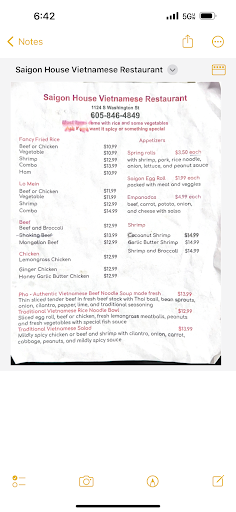 6:42
5G
Notes
Saigon House Vietnamese Restaurant
Saigon House Vietnamese Restaurant
1124 S Washington St
605-846-4849
come with rice and some vegetables
want it spicy or something special
Fancy Fried Rice
Beef or Chicken $10.99
Vegetable $10.99
Shrimp $12.99
Combo $13.99
Ham $10.99
Lo Mein
Beef or Chicken $11.99
Vegetable $11.99
Shrimp $12.99
Combo $14.99
Beef
Beef and Broccoli $12.99
Shaking Beef $13.99
Mongolian Beef $12.99
Chicken
Lemongrass Chicken $12.99
Ginger Chicken $12.99
Honey Garlic Butter Chicken $12.99
Appetizers
Spring rolls $3.50 each
with shrimp, pork, rice noodle,
onion, lettuce, and peanut sauce
Saigon Egg Roll $1.99 each
packed with meat and veggies
Empanadas $4.99 each
beef, carrot, potato, onion,
and cheese with salsa
Shrimp
Coconut Shrimp $14.99
Garlic Butter Shrimp $14.99
Shrimp and Broccoli $14.99
Pho - Authentic Vietnamese Beef Noodle Soup made fresh $13.99
Thin sliced tender beef in fresh beef stock with Thai basil, bean sprouts,
onion, cilantro, pepper, lime, and traditional seasoning
Traditional Vietnamese Rice Noodle Bowl $12.99
Sliced egg roll, beef or chicken, fresh lemongrass meatballs, peanuts
and fresh vegetables with special fish sauce
Traditional Vietnamese Salad $13.99
Mildly spicy chicken or beef and shrimp with cilantro, onion, carrot,
cabbage, peanuts, and mildly spicy sauce